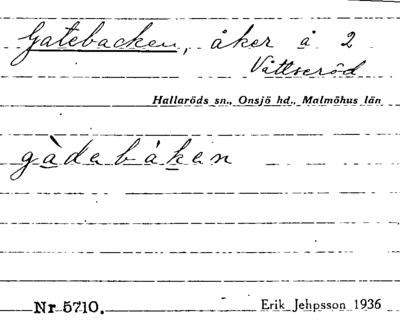 Gatebacken, åker å 2
Vättseröd
Hallaröds sn., Onsjö hd., Malmöhus län
gàdebákен
Nr 5710.
Erik Jehpsson 1936